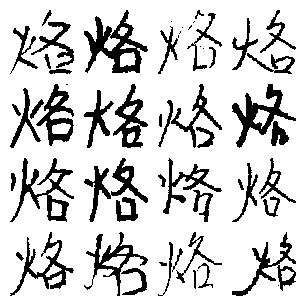 烙烙烙烙
烙烙烙烙
烙烙烙烙
烙烙烙烙